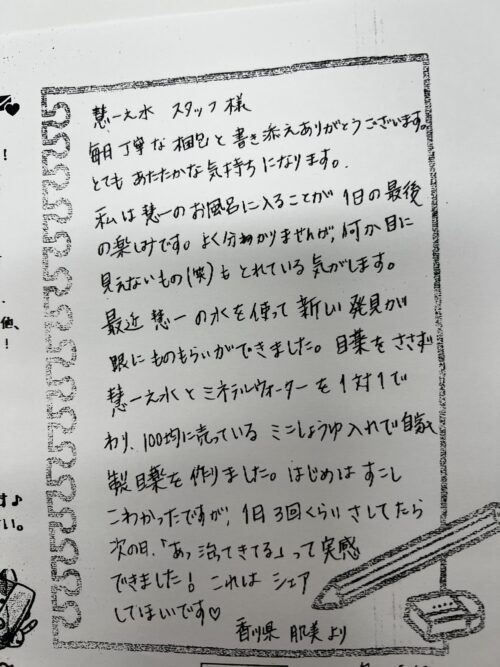 慧一え水 スタッフ様
毎日丁寧な梱包と書き添えありがとうございます。
とても あたたかな気持ちになります。
私は慧一のお風呂に入ることが1日の最後
の楽しみです。よく分かりませんが、何か目に
見えないもの(笑)もとれている気がします。
最近 慧一の水を使って新しい発見が
眼にものもらいができました。目薬をささず
慧一え水とミネラルウォーターを1対1で
わり、100均に売っているミニしょうゆ入れで自家
製目薬を作りました。はじめはすこし
こわかったですが、1日3回くらいさしてたら
次の日、「あっ治ってきてる」って実感
できました! これは シェア
してほしいです♡
香川県 美より
!
他、
!
♪
い。